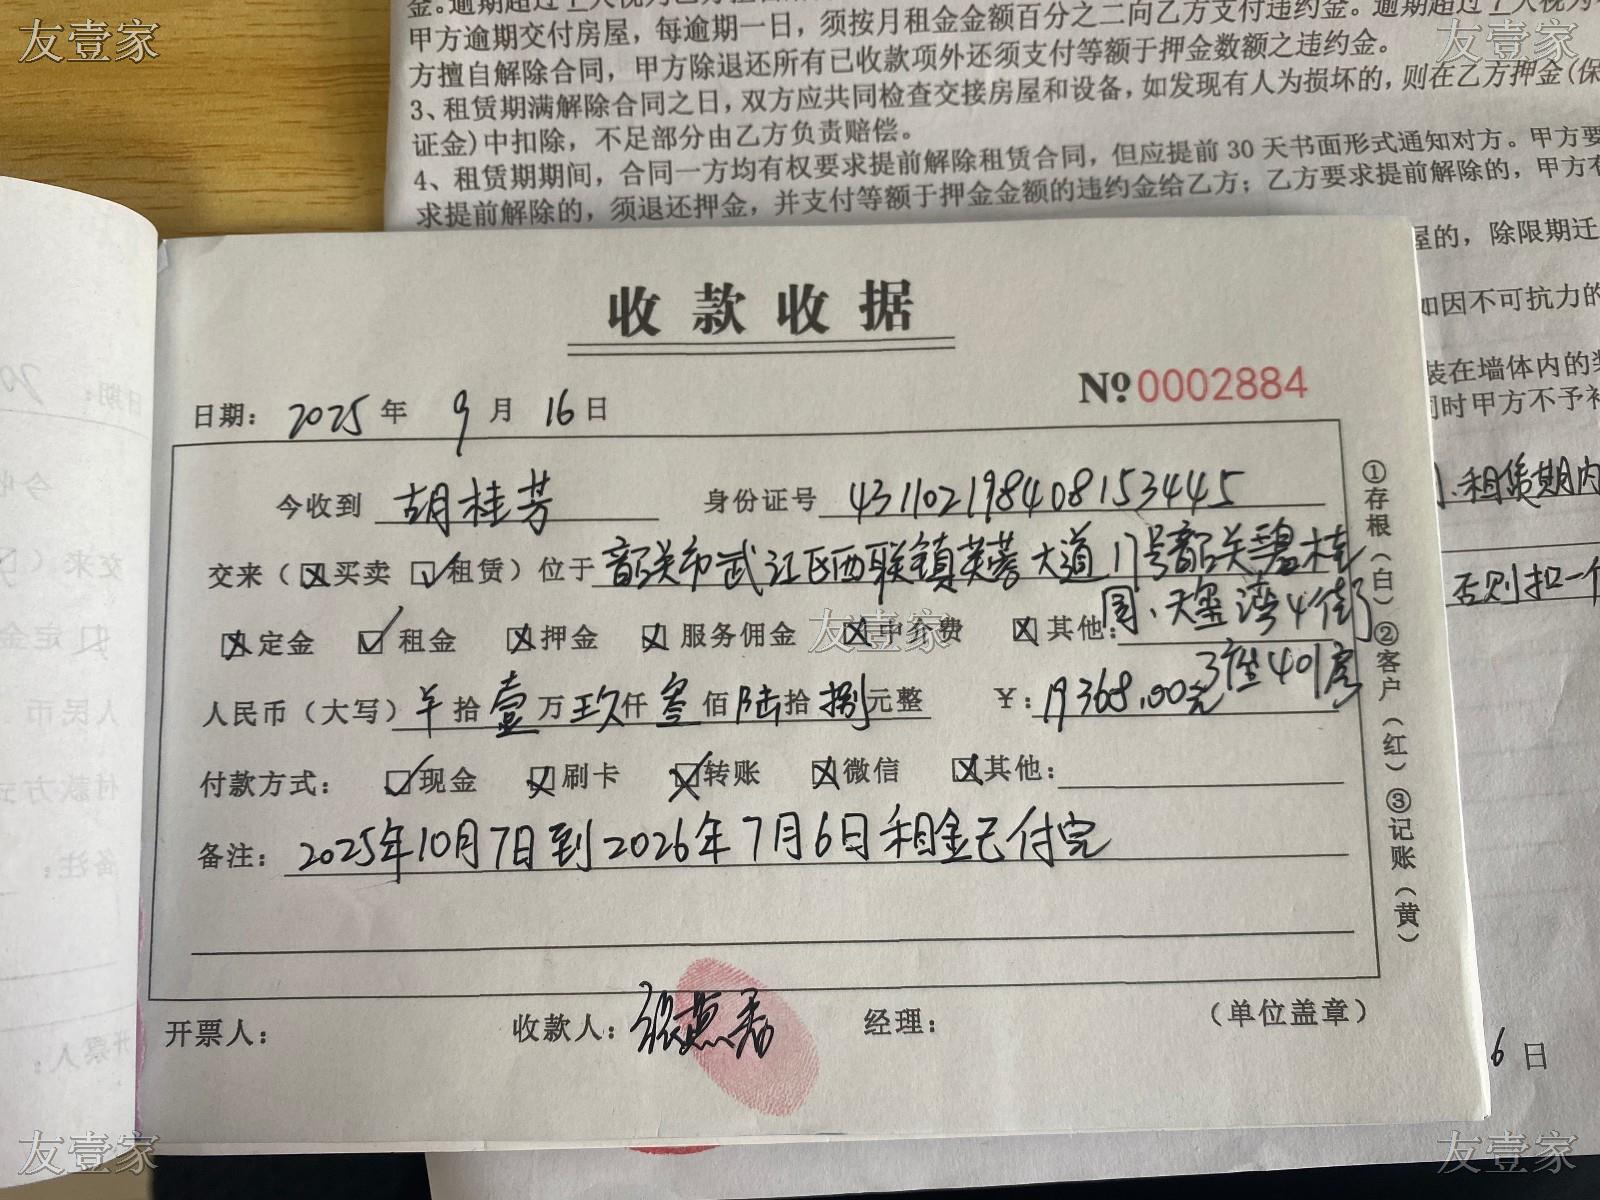 友壹家
友壹家
甲方逾期交付房屋，每逾期一日，须按月租金金额百分之二向乙方支付违约金。逾期超过
方擅自解除合同，甲方除退还所有已收款项外还须支付等额于押金数额之违约金。
3、租赁期满解除合同之日，双方应共同检查交接房屋和设备，如发现有人为损坏的，则在乙方押金(保
证金)中扣除，不足部分由乙方负责赔偿。
4、租赁期期间，合同一方均有权要求提前解除租赁合同，但应提前30天书面形式通知对方。甲方要
求提前解除的，须退还押金，并支付等额于押金金额的违约金给乙方；乙方要求提前解除的，甲方有
屋的，除限期迁
如因不可抗力的
装在墙体内的
同时甲方不予补
租赁期内
否则扣一个
收款收据
№ 0002884
日期：2025年 9月 16日
今收到 胡桂芳 身份证号 431102198408153445
交来（☒买卖 ☑租赁）位于 韶关市武江区西联镇芙蓉大道17号韶关碧桂
园、天玺湾4街
3座401房
☒定金 ☑租金 ☒押金 ☒服务佣金 ☒中介费 ☒其他：
人民币（大写）羊拾壹万玖仟叁佰陆拾捌元整 ¥：19368.00元
付款方式：☑现金 ☒刷卡 ☒转账 ☒微信 ☒其他：
备注：2025年10月7日到2026年7月6日租金已付完
开票人： 收款人：张燕香 经理： （单位盖章）
①存根（白）②客户（红）③记账（黄）
6日
友壹家
友壹家
友壹家